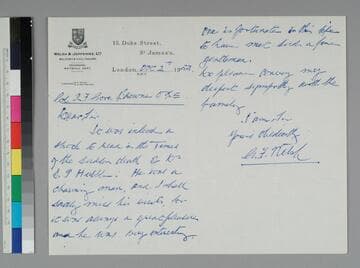 WELSH & JEFFERIES, LTD
15, Duke Street,
St. James's,
London,
Dear Sir
It was indeed a
shock to read in the Times
of the sudden death of Mr
E P Hubble. He was a
charming man, and I shall
sadly miss his visits, for
it was always a great pleasure
and he was very interesting
one is fortunate in this life
to have met such a fine
gentleman.
So please convey my
deepest sympathy with the
family
I am Sir
Yours Obediently